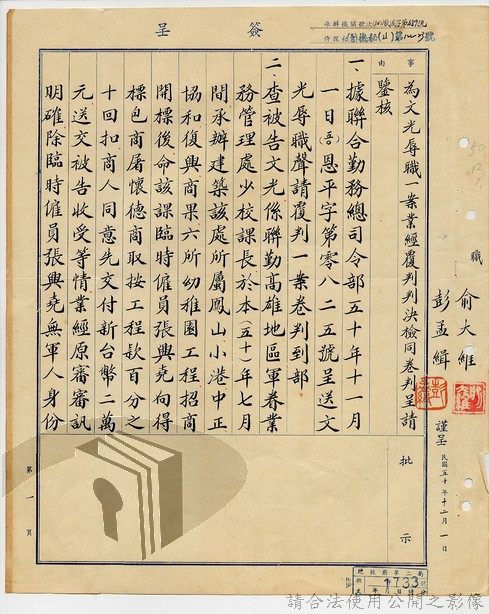 簽呈
事由
為文光辱職一案業經覆判判決檢同卷判呈請
鑒核
一、據聯合勤務總司令部五十年十一月
一日(吾)恩平字第零八二五號呈送文
光辱職聲請覆判一案卷判到部
二、查被告文光係聯勤高雄地區軍眷業
務管理處少校課長於本(五十)年七月
間承辦建築該處所屬鳳山小港中正
協和復興商果六所幼稚園工程招商
開標後命該課臨時僱員張興堯向得
標包商屠懷德商取按工程款百分之
十回扣商人同意先交付新台幣二萬
元送交被告收受等情業經原審審訊
明確除臨時僱員張興堯無軍人身份
職
俞大維
彭孟緝
謹呈
民國五十年十二月一日
批示
第一頁
總統府第二局
1733
請合法使用公開之影像